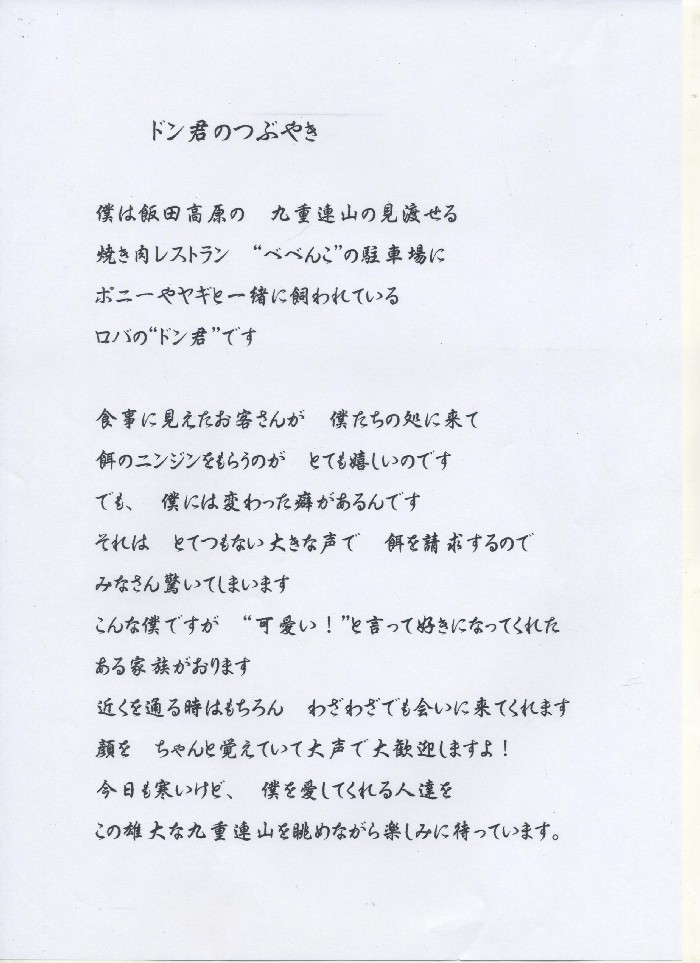 ドン君のつぶやき
僕は飯田高原の　九重連山の見渡せる
焼き肉レストラン　“べべんこ”の駐車場に
ポニーやヤギと一緒に飼われている
ロバの“ドン君”です
食事に見えたお客さんが　僕たちの処に来て
餌のニンジンをもらうのが　とても嬉しいのです
でも、　僕には変わった癖があるんです
それは　とてつもない大きな声で　餌を請求するので
みなさん驚いてしまいます
こんな僕ですが　“可愛い！”と言って好きになってくれた
ある家族がおります
近くを通る時はもちろん　わざわざでも会いに来てくれます
顔を　ちゃんと覚えていて大声で大歓迎しますよ！
今日も寒いけど、　僕を愛してくれる人達を
この雄大な九重連山を眺めながら楽しみに待っています。